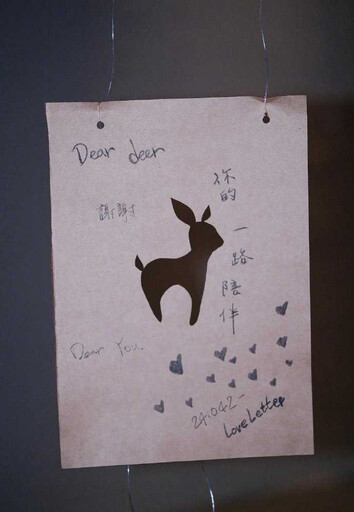 Dear deer
謝謝
你的
一路
陪伴
Dear You.
24.042-
Love Letter